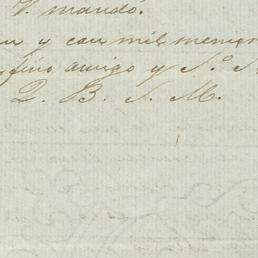 V. mandó.
y con mil memor
fino amigo y S.º S.
Q. B. S. M.